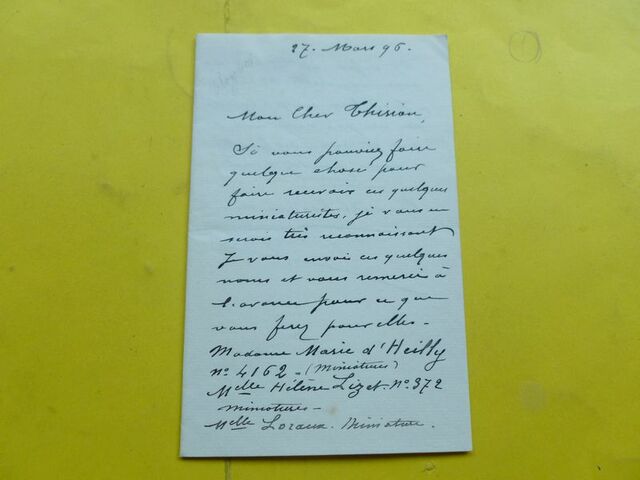 27. Mars 96.
Mon Cher Thirion,
Si vous pouviez faire
quelque chose pour
faire recevoir ces quelques
miniaturistes, je vous en
serais très reconnaissant
Je vous envoie ces quelques
noms et vous remercie à
l'avance pour ce que
vous ferez pour elles -
Madame Marie d'Heilly
no 4162 - (Miniatures)
Melle Hélène Lizet. No 372
miniatures -
Melle Loraux. Miniature.